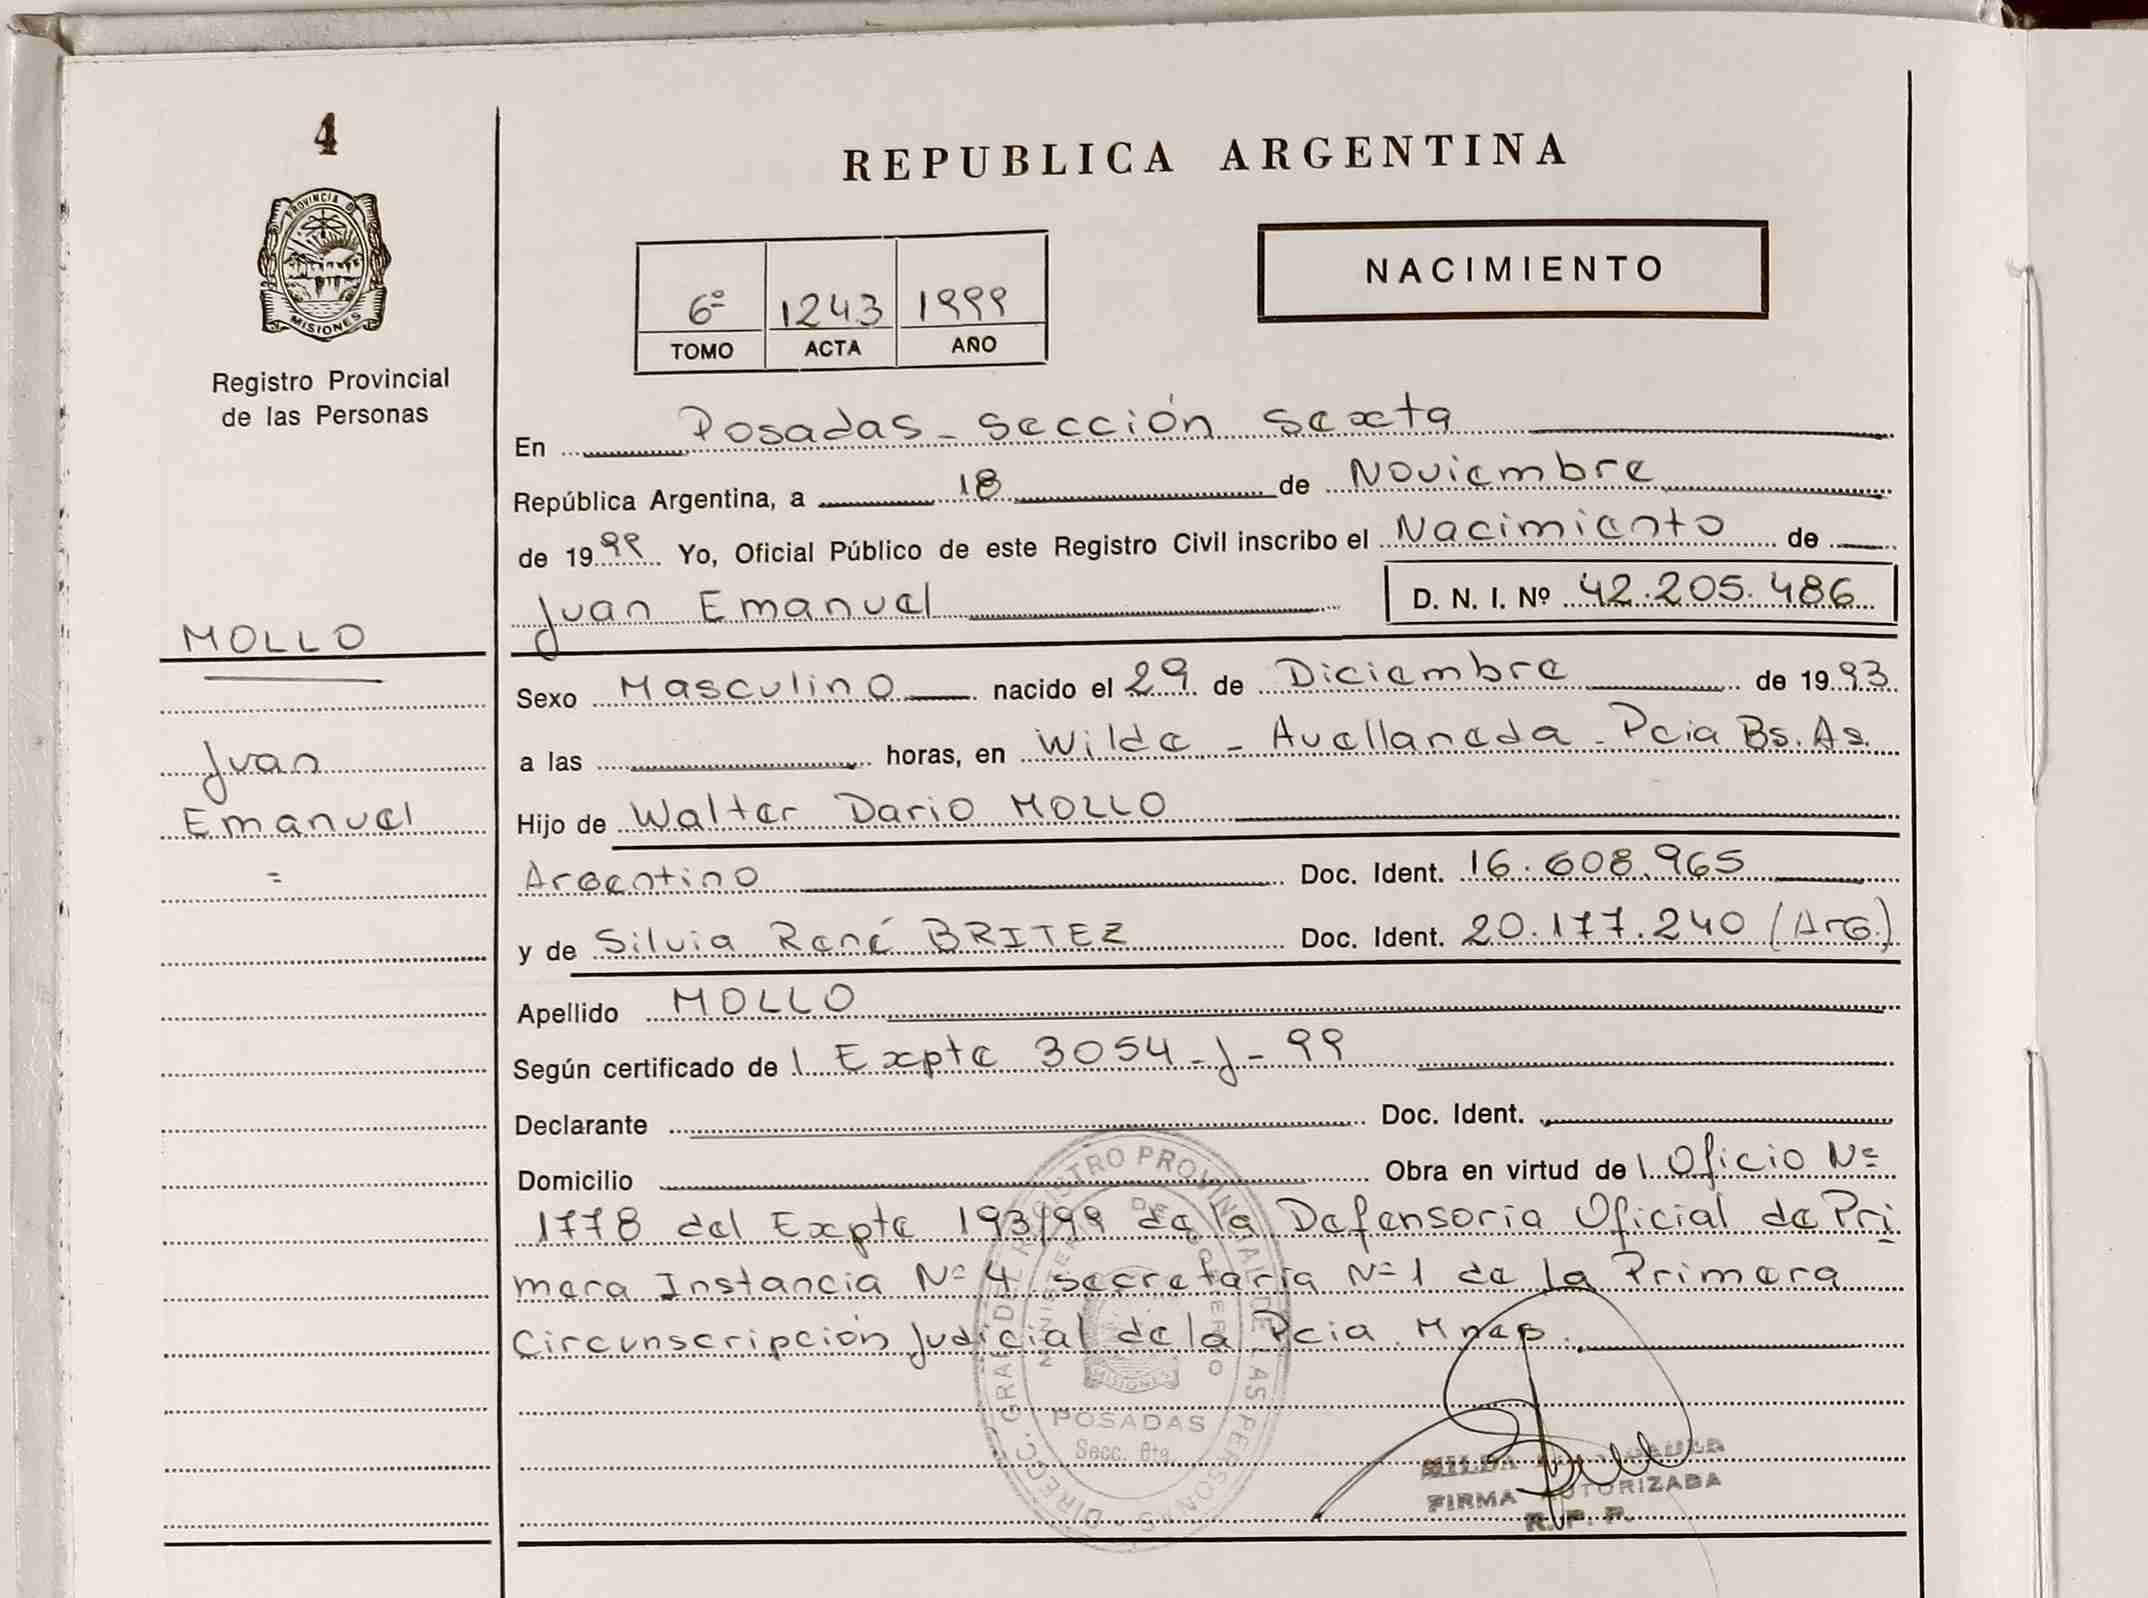 4
PROVINCIA DE
MISIONES
Registro Provincial
de las Personas
MOLLO
Juan
Emanuel
=
REPUBLICA ARGENTINA
NACIMIENTO
6º 1243 1999
TOMO ACTA AÑO
En Posadas - Sección Sexta
República Argentina, a 18 de Noviembre
de 1999 Yo, Oficial Público de este Registro Civil inscribo el Nacimiento de
Juan Emanuel D. N. I. Nº 42.205.486
Sexo Masculino nacido el 29 de Diciembre de 1993
a las horas, en Wilde - Avellaneda - Pcia Bs. As.
Hijo de Walter Dario MOLLO
Argentino Doc. Ident. 16.608.965
y de Silvia René BRITEZ Doc. Ident. 20.177.240 (Arg.)
Apellido MOLLO
Según certificado de l Expte 3054-J-99
Declarante Doc. Ident.
Domicilio Obra en virtud de l Oficio Nº
1778 del Expte 193/99 de la Defensoria Oficial de Pri
mera Instancia Nº 4 secretaria Nº 1 de la Primera
Circunscripción Judicial de la Pcia.
DIRECC. GRAL DEL REGISTRO PROVINCIAL DE LAS PERSONAS
MINISTERIO DE GOBIERNO
MISIONES
POSADAS
Secc. 6ta.
FIRMA AUTORIZADA
R. P. P.